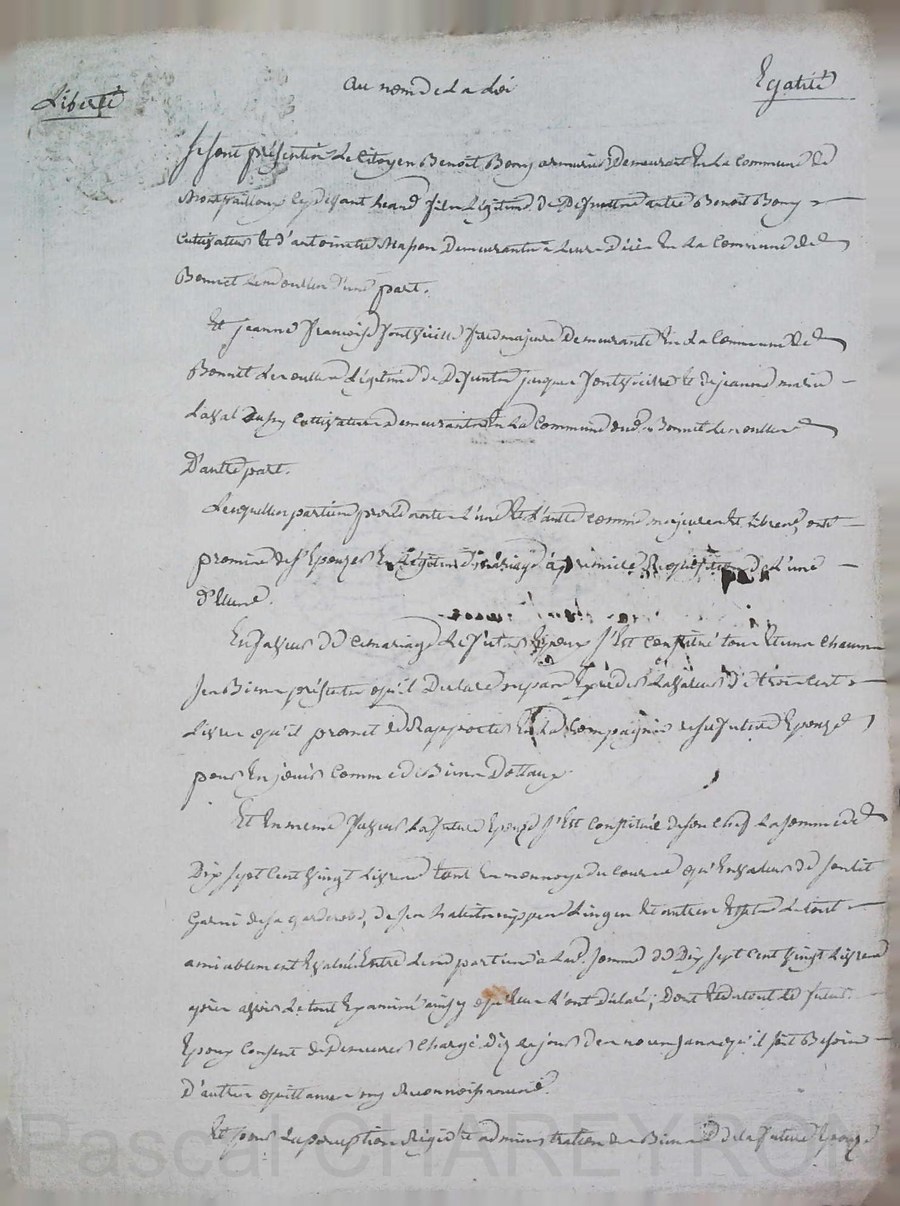 Liberté
au nom de la Loi
Egalité
Se sont présentés Le Citoyen Benoit Bony armurier Demeurant En La Commune de
cy devant heard fils Légitime De Deffunt autre Benoit Bony
Cultivateur Et d'antoinette Mapon Demeurants a Leur Décès En La Commune de
Bonnet Lesoulles d'une part.
Et jeanne françoise fontvieille fille majeure Demeurante En La Commune De
Bonnet Lesoulles Légitime de Defunt jacques fontvieille Et de jeanne marie
Laval Cultivateurs Demeurants En La Commune dud. Bonnet Lesoulles
D'autre part.
Lesquelles parties procedantes L'une Et L'autre comme majeures Et libres, ont
promis de s'Epouzer En Légitime mariage à première Requisition De L'une
d'Elles.
En faveur de Ce mariage Le futur Epoux s'Est Constitué tous Et uns Chacuns
ses Biens présents qu'il Declare La valeur d trois cent
Livres qu'il promet de Rapporter En La Compagnie de sa future Epouze
pour En jouir Comme de Biens Dottaux.
Et En meme faveur La future Epouze s'Est Constituée de son Chef La somme de
Dix sept Cent Vingt Livres tant En monnoye du Cours qu'En valeur de son lit
Garni de sa garderobe, de ses habits nippes Linges Et autres Effets Le tout
amiablement Evalué Entre Lesd parties à Lad. somme de Dix sept Cent Vingt Livres
après avoir Le tout Examiné ainsy qu'Elles L'ont Déclaré; Dont Et du tout Le futur
Epoux Consent de Demeurer Chargé Dez le jour de ses noces sans qu'il soit Besoin
D'autre quittance ny Reconnoissance.
Et pour La perception Régie Et administration des Biens de La future Epouze
Pascal CHAREYRON